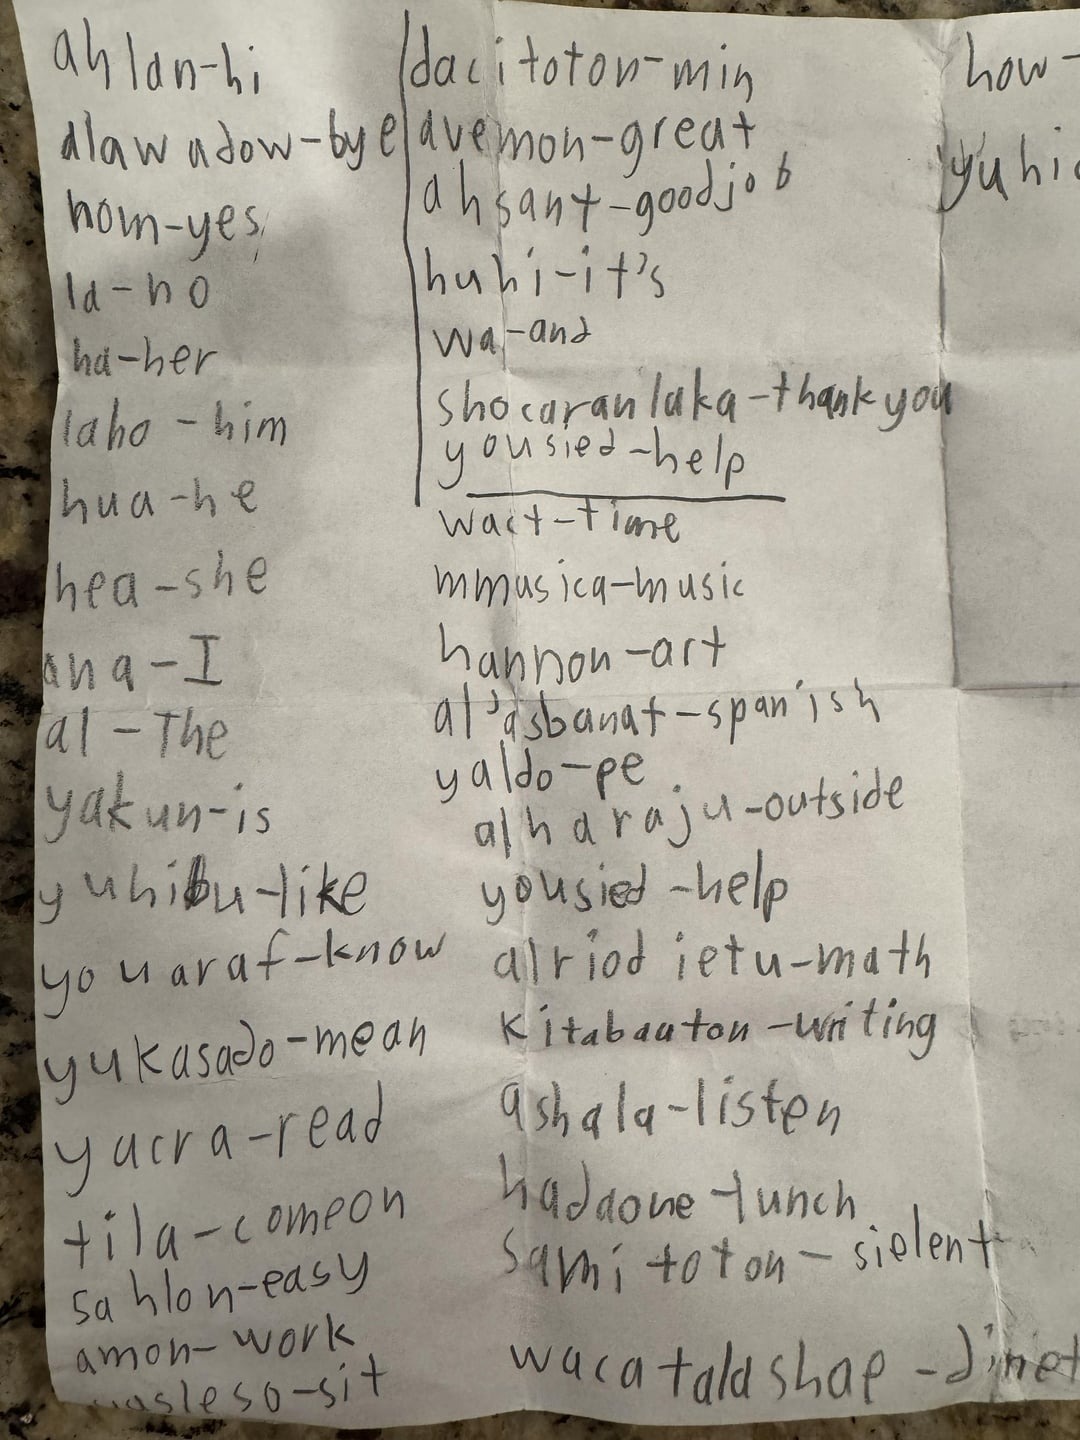 ahlan-hi
alaw adow-bye
nom-yes
la-no
ha-her
laho-him
hua-he
hea-she
ana-I
al-The
yakun-is
yuhibu-like
youaraf-know
yukasado-mean
yacra-read
tila-comeon
sahlon-easy
amon-work
-sit
dacitoton-min
avemon-great
ahsant-goodjob
huhi-it's
wa-and
shocaran laka-thank you
yousied-help
wact-time
mmusica-music
hannon-art
al'asbanat-spanish
yaldo-pe
alharaju-outside
yousied-help
alriod ietu-math
kitabauton-writing
ashala-listen
hadaone-lunch
samitoton-sielent
waca talashae-
how-
yuhi